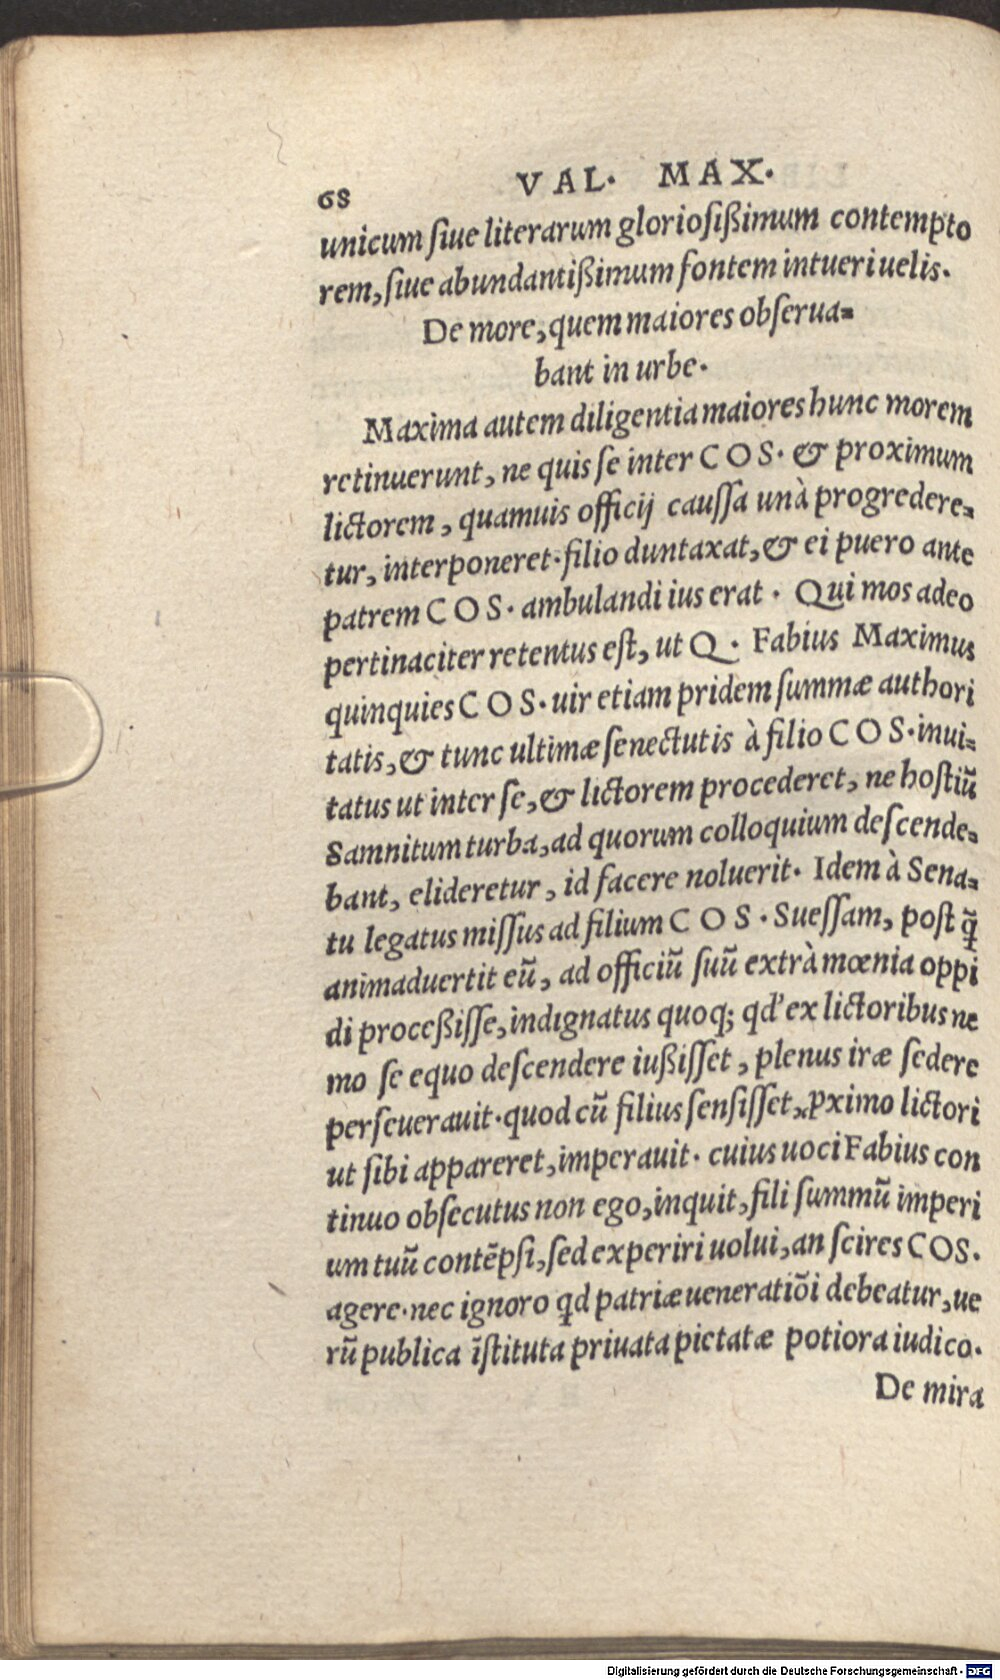 68 VAL. MAX.
unicum ſiue literarum glorioſißimum contempto
rem, ſiue abundantißimum fontem intueri uelis.
De more, quem maiores obſerua=
bant in urbe.
Maxima autem diligentia maiores hunc morem
retinuerunt, ne quis ſe inter COS. & proximum
lictorem, quamuis officij cauſſa unà progredere=
tur, interponeret. filio duntaxat, & ei puero ante
patrem COS. ambulandi ius erat. Qui mos adeo
pertinaciter retentus eſt, ut Q. Fabius Maximus
quinquies COS. uir etiam pridem ſummæ authori
tatis, & tunc ultimæ ſenectutis à filio COS. inui=
tatus ut inter ſe, & lictorem procederet, ne hoſtiũ
Samnitum turba, ad quorum colloquium deſcende=
bant, elideretur, id facere noluerit. Idem à Sena=
tu legatus miſſus ad filium COS. Sueſſam, poſt q̃
animaduertit eũ, ad officiũ ſuũ extrà mœnia oppi
di proceßiſſe, indignatus quoq; qd' ex lictoribus ne
mo ſe equo deſcendere iußiſſet, plenus iræ ſedere
perſeuerauit. quod cũ filius ſenſiſſet, ꝓximo lictori
ut ſibi appareret, imperauit. cuius uoci Fabius con
tinuo obſecutus non ego, inquit, fili ſummũ imperi
um tuũ contẽpſi, ſed experiri uolui, an ſcires COS.
agere. nec ignoro qd patriæ ueneratiõi debeatur, ue
rũ publica ĩſtituta priuata pietatæ potiora iudico.
De mira
Digitalisierung gefördert durch die Deutsche Forschungsgemeinschaft - DFG